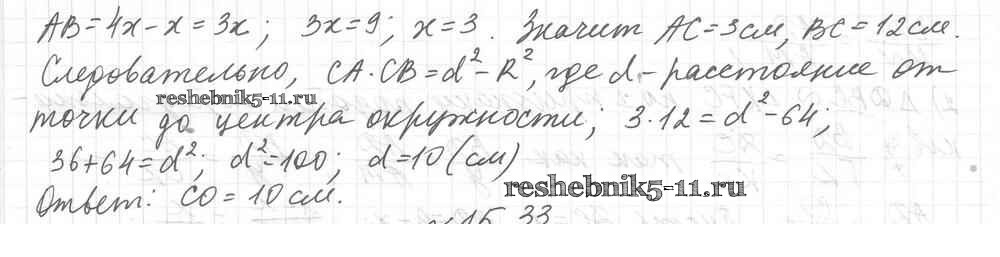 AB=4x-x=3x; 3x=9; x=3. Значит AC=3см, BC=12см.
Следовательно, CA·CB=d²-R², где d-расстояние от
reshebnik5-11.ru
точки до центра окружности; 3·12=d²-64;
36+64=d²; d²=100; d=10(см)
reshebnik5-11.ru
Ответ: CO=10см.
15.33